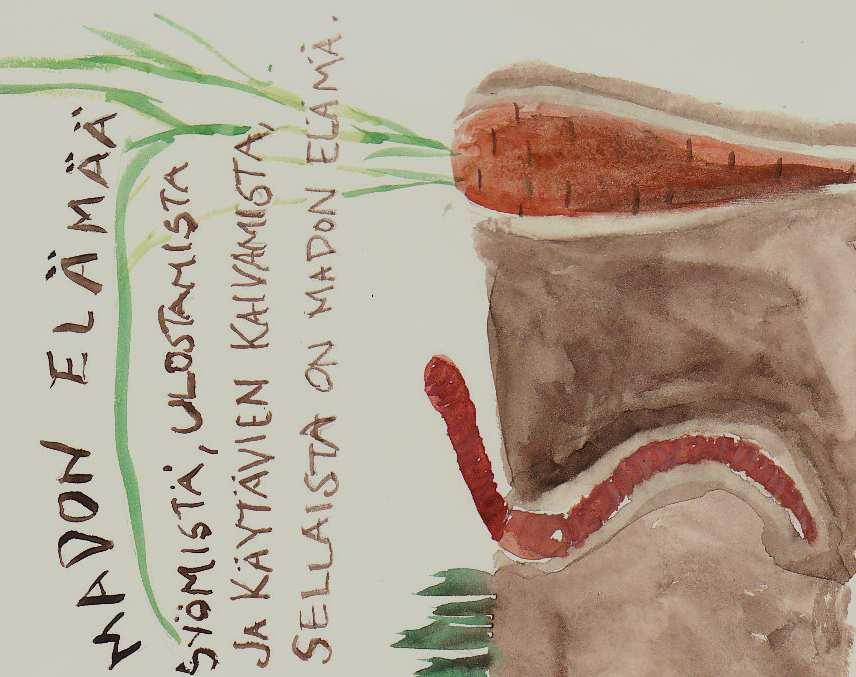 MADON ELÄMÄÄ
SYÖMISTÄ, ULOSTAMISTA
JA KÄYTÄVIEN KAIVAMISTA,
SELLAISTA ON MADON ELÄMÄ.